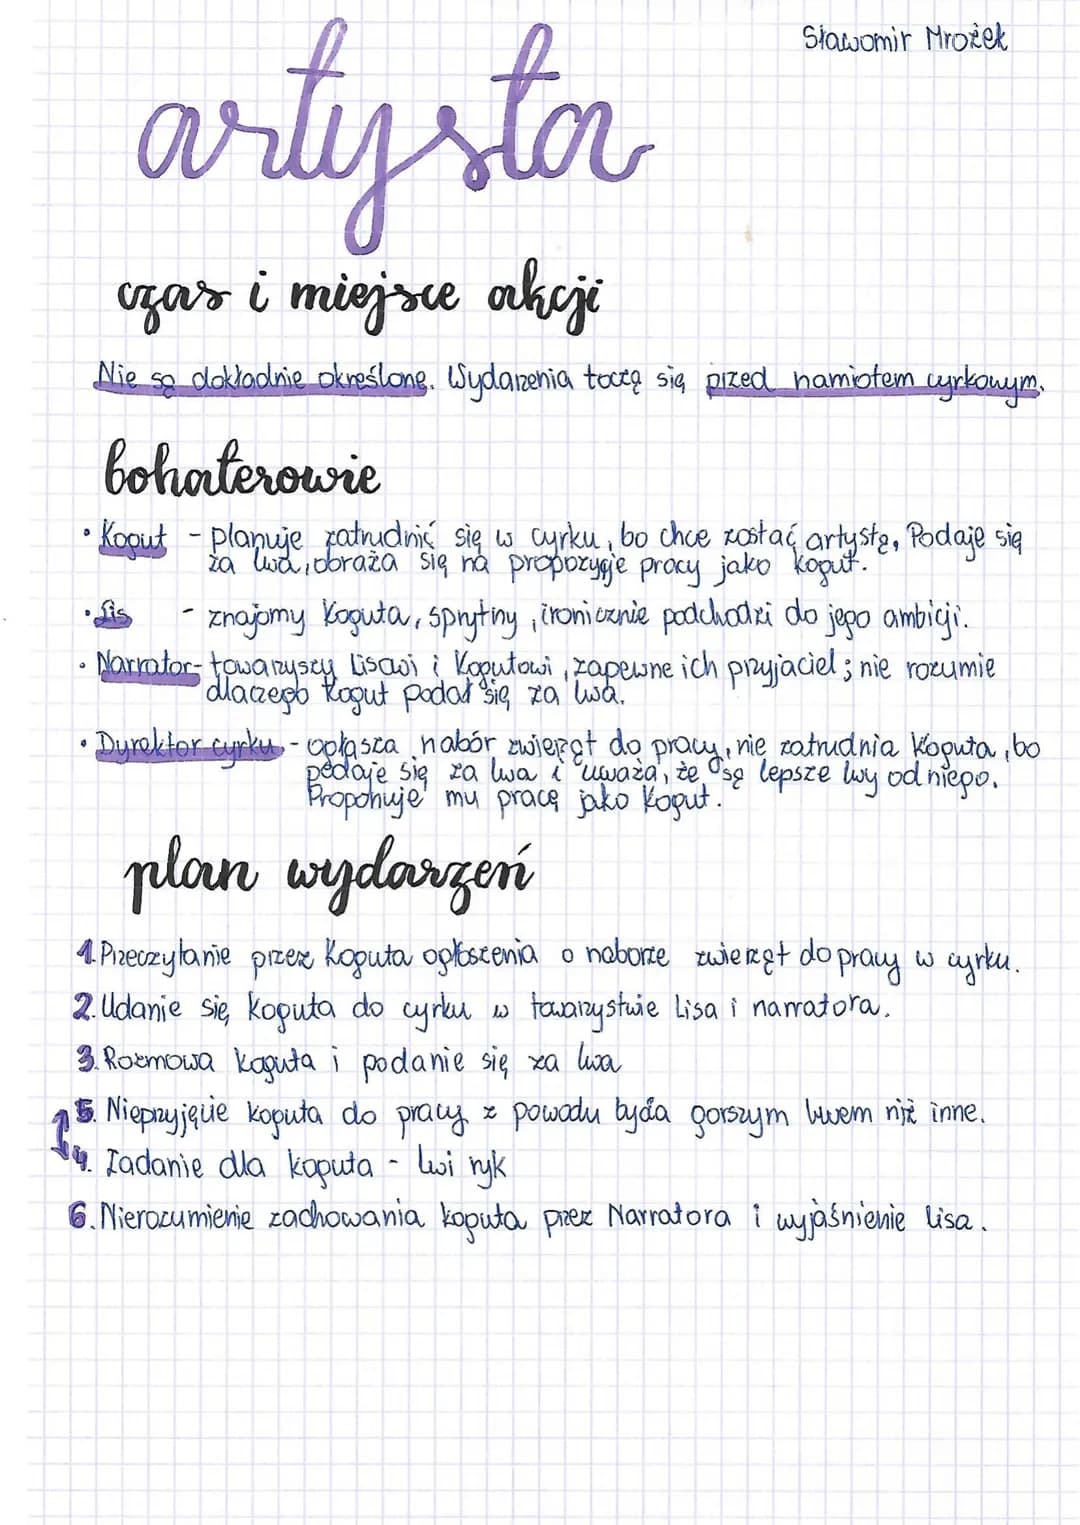 Sławomir Mrożek
artysta
czas i miejsce akcji
Nie są dokładnie określone. Wydarzenia toczą się przed namiotem cyrkowym.
bohaterowie
• Kogut - planuje zatrudnić się w cyrku, bo chce zostać artystą. Podaje się
za lwa, obraża się na propozycje pracy jako kogut.
• lis - znajomy Koguta, sprytny, ironicznie podchodzi do jego ambicji.
• Narrator - towarzyszy Lisowi i Kogutowi, zapewne ich przyjaciel; nie rozumie
dlaczego Kogut podał się za lwa.
• Dyrektor cyrku - ogłasza nabór zwierząt do pracy, nie zatrudnia Koguta, bo
podaje się za lwa i uważa, że są lepsze lwy od niego.
Proponuje mu pracę jako Kogut.
plan wydarzeń
1. Przeczytanie przez Koguta ogłoszenia o naborze zwierząt do pracy w cyrku.
2. Udanie się koguta do cyrku w towarzystwie Lisa i narratora.
3. Rozmowa koguta i podanie się za lwa
5. Nieprzyjęcie koguta do pracy z powodu bycia gorszym lwem niż inne.
4. Zadanie dla koguta - lwi ryk
6. Nierozumienie zachowania koguta przez Narratora i wyjaśnienie lisa.